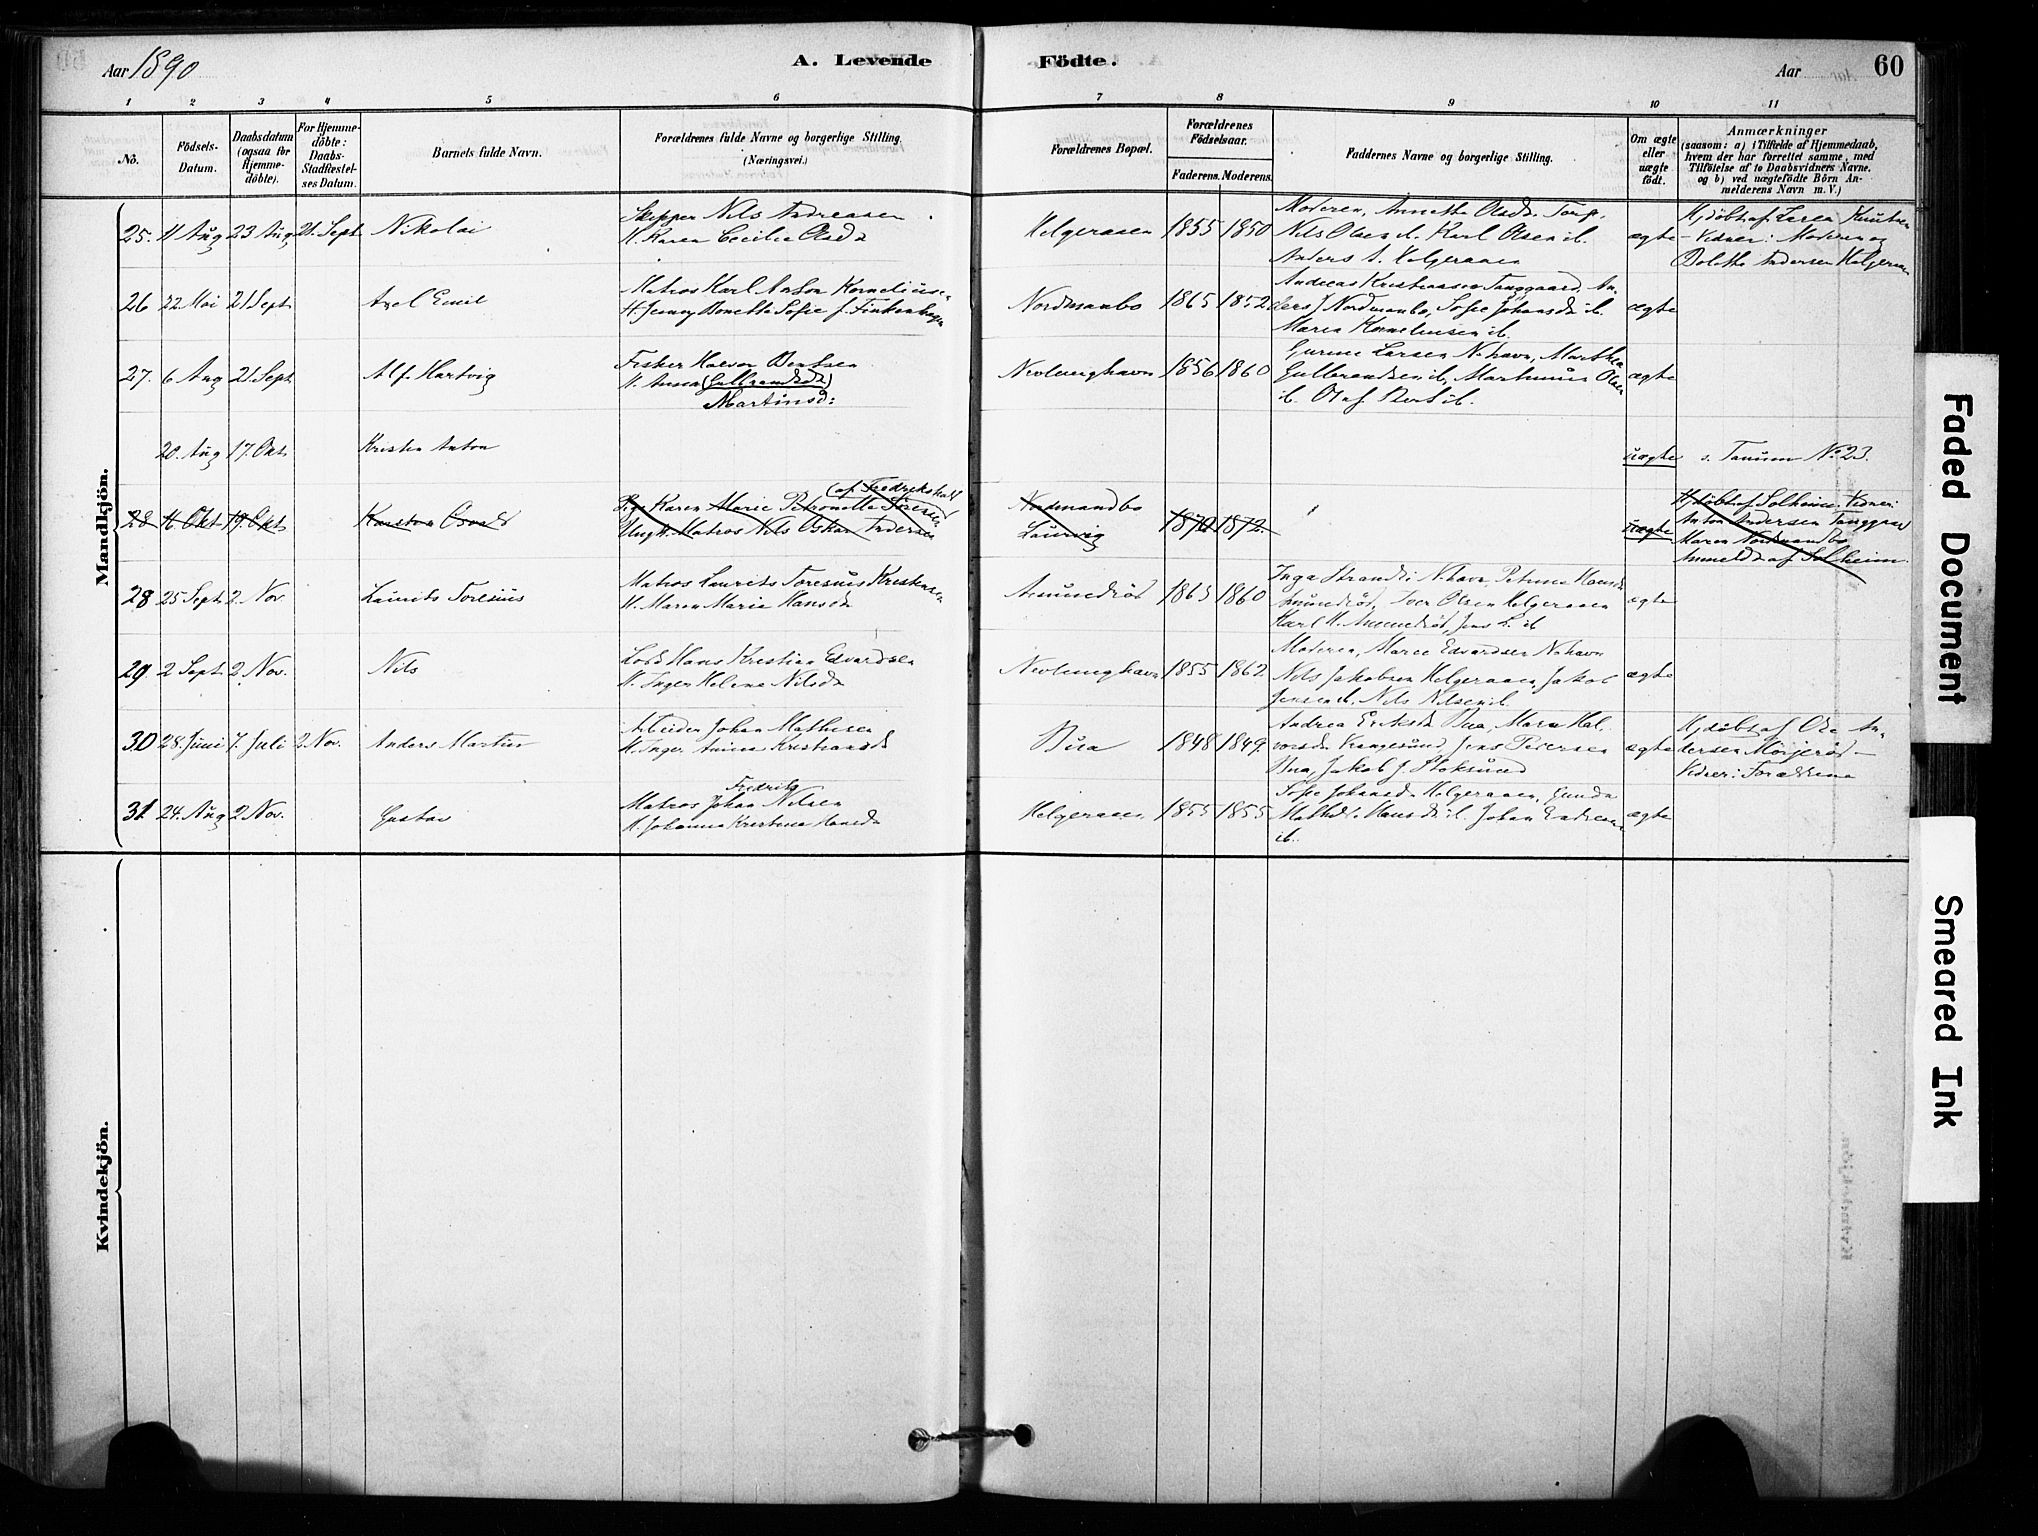 Aar 1890
A. Levende Födte.
Aar
60
1 2 3 4 5 6 7 8 9 10 11
No.
Födsels-Datum.
Daabsdatum (ogsaa for Hjemme-döbte).
For Hjemme-döbte: Daabs-Stadfæstel-ses Datum.
Barnets fulde Navn.
Forældrenes fulde Navne og borgerlige Stilling.
(Næringsvei.)
Forældrenes Bopæl.
Forældrenes Födselsaar.
Faderens. Moderens.
Faddernes Navne og borgerlige Stilling.
Om ægte eller uægte födt.
Anmærkninger
(saasom: a) i Tilfælde af Hjemmedaab,
hvem der har forrettet samme, med
Tilföielse af to Daabsvidners Navne,
og b) ved uægtefödte Börn An-
melderens Navn m. V.)
Mandkjön.
25. 11 Aug 23 Aug 21. Sept Nikolai
Skipper Nils Andreasen
H. Karen Cecilie Olsdt
Helgeraaen 1855 1850
Moderen, Annette Olsdt. Torp,
Nils Olsen ib. Karl Olsen ib.
Anders A. Helgeraaen
ægte
Hjdøbt af Knutsen
Vidner: Moderen og
Andersen Helgeraaen
26 22 Mai 21 Sept Axel Emil
Matros Karl Anton Kornelius
H. Jenny Bonette Sofie f. Finkenhagen
Nordmanbo 1865 1852
Andreas Kristiansen Tanggaard, An-
ders J Nordmanbo, Sofie Johansdt ib.
Maren Korneliusen ib.
ægte
27. 6 Aug 21. Sept Alf Hartvig
Fisker Halvor Berntsen
H. Anna (Gulbrandsdt)
Martinsd:
Nevlunghavn 1856 1860
Larsen N.havn, Marthea
Gulbrandsen ib, Martinius Olsen
ib. Olaf ib.
ægte
20. Aug 17. Okt Kristen Anton
uægte s. Tanum No 23.
28 16 Okt 19. Okt Karsten Osvald
Pige Karen Marie Petronelle Sørensen (af Fredrikshald
Ungk. Matros Nils Oskar Andersen
Nordmandbo
Laurvig
1870 1872.
uægte
Hjdøbt af Solheim. Vidner:
Anton Andersen Tanggaard
Maren Nordmandbo
Anmeldt af Solheim.
28 25 Sept 2 Nov. Laurits Toresius
Matros Laurits Toresius Kristensen
H. Maren Marie Hansdt
Amundrød 1865 1860
Inga Strand: N.havn, Petrine Hansdt
Amundrød, Iver Olsen Helgeraaen
Karl H. Amundrød, Jens L. ib
ægte
29 2 Sept 2 Nov. Nils
Lods Hans Kristian Edvardsen
H. Inger Helene Nilsdt
Nevlunghavn 1855 1862
Moderen, Maren Edvardsen N.havn
Nils Jakobsen Helgeraaen, Jakob
Jensen ib, Nils Nilsen ib.
ægte
30 28. Juni 7. Juli 2 Nov. Anders Martin
Arbeider Johan Mathisen
H. Inger Anna Kristiansdt
Bua 1848 1849.
Andrea Eriksdt Bua, Maren Hal-
vorsdt Krangesund, Jens Petersen
Bua, Jakob J. Stoksund
ægte
Hjdøbt af Ole An-
dersen
Vidner: Forældrene
31 24. Aug 2 Nov. Gustav
Fredrik
Matros Johan Nilsen
H. Johanna Kristine Hansdt
Helgeraaen. 1855 1855
Sofie Johansdt Helgeraaen, Gunda
Mathilde Hansdt ib. Johan
ib.
ægte
Kvindekjön.
Faded Document
Smeared Ink